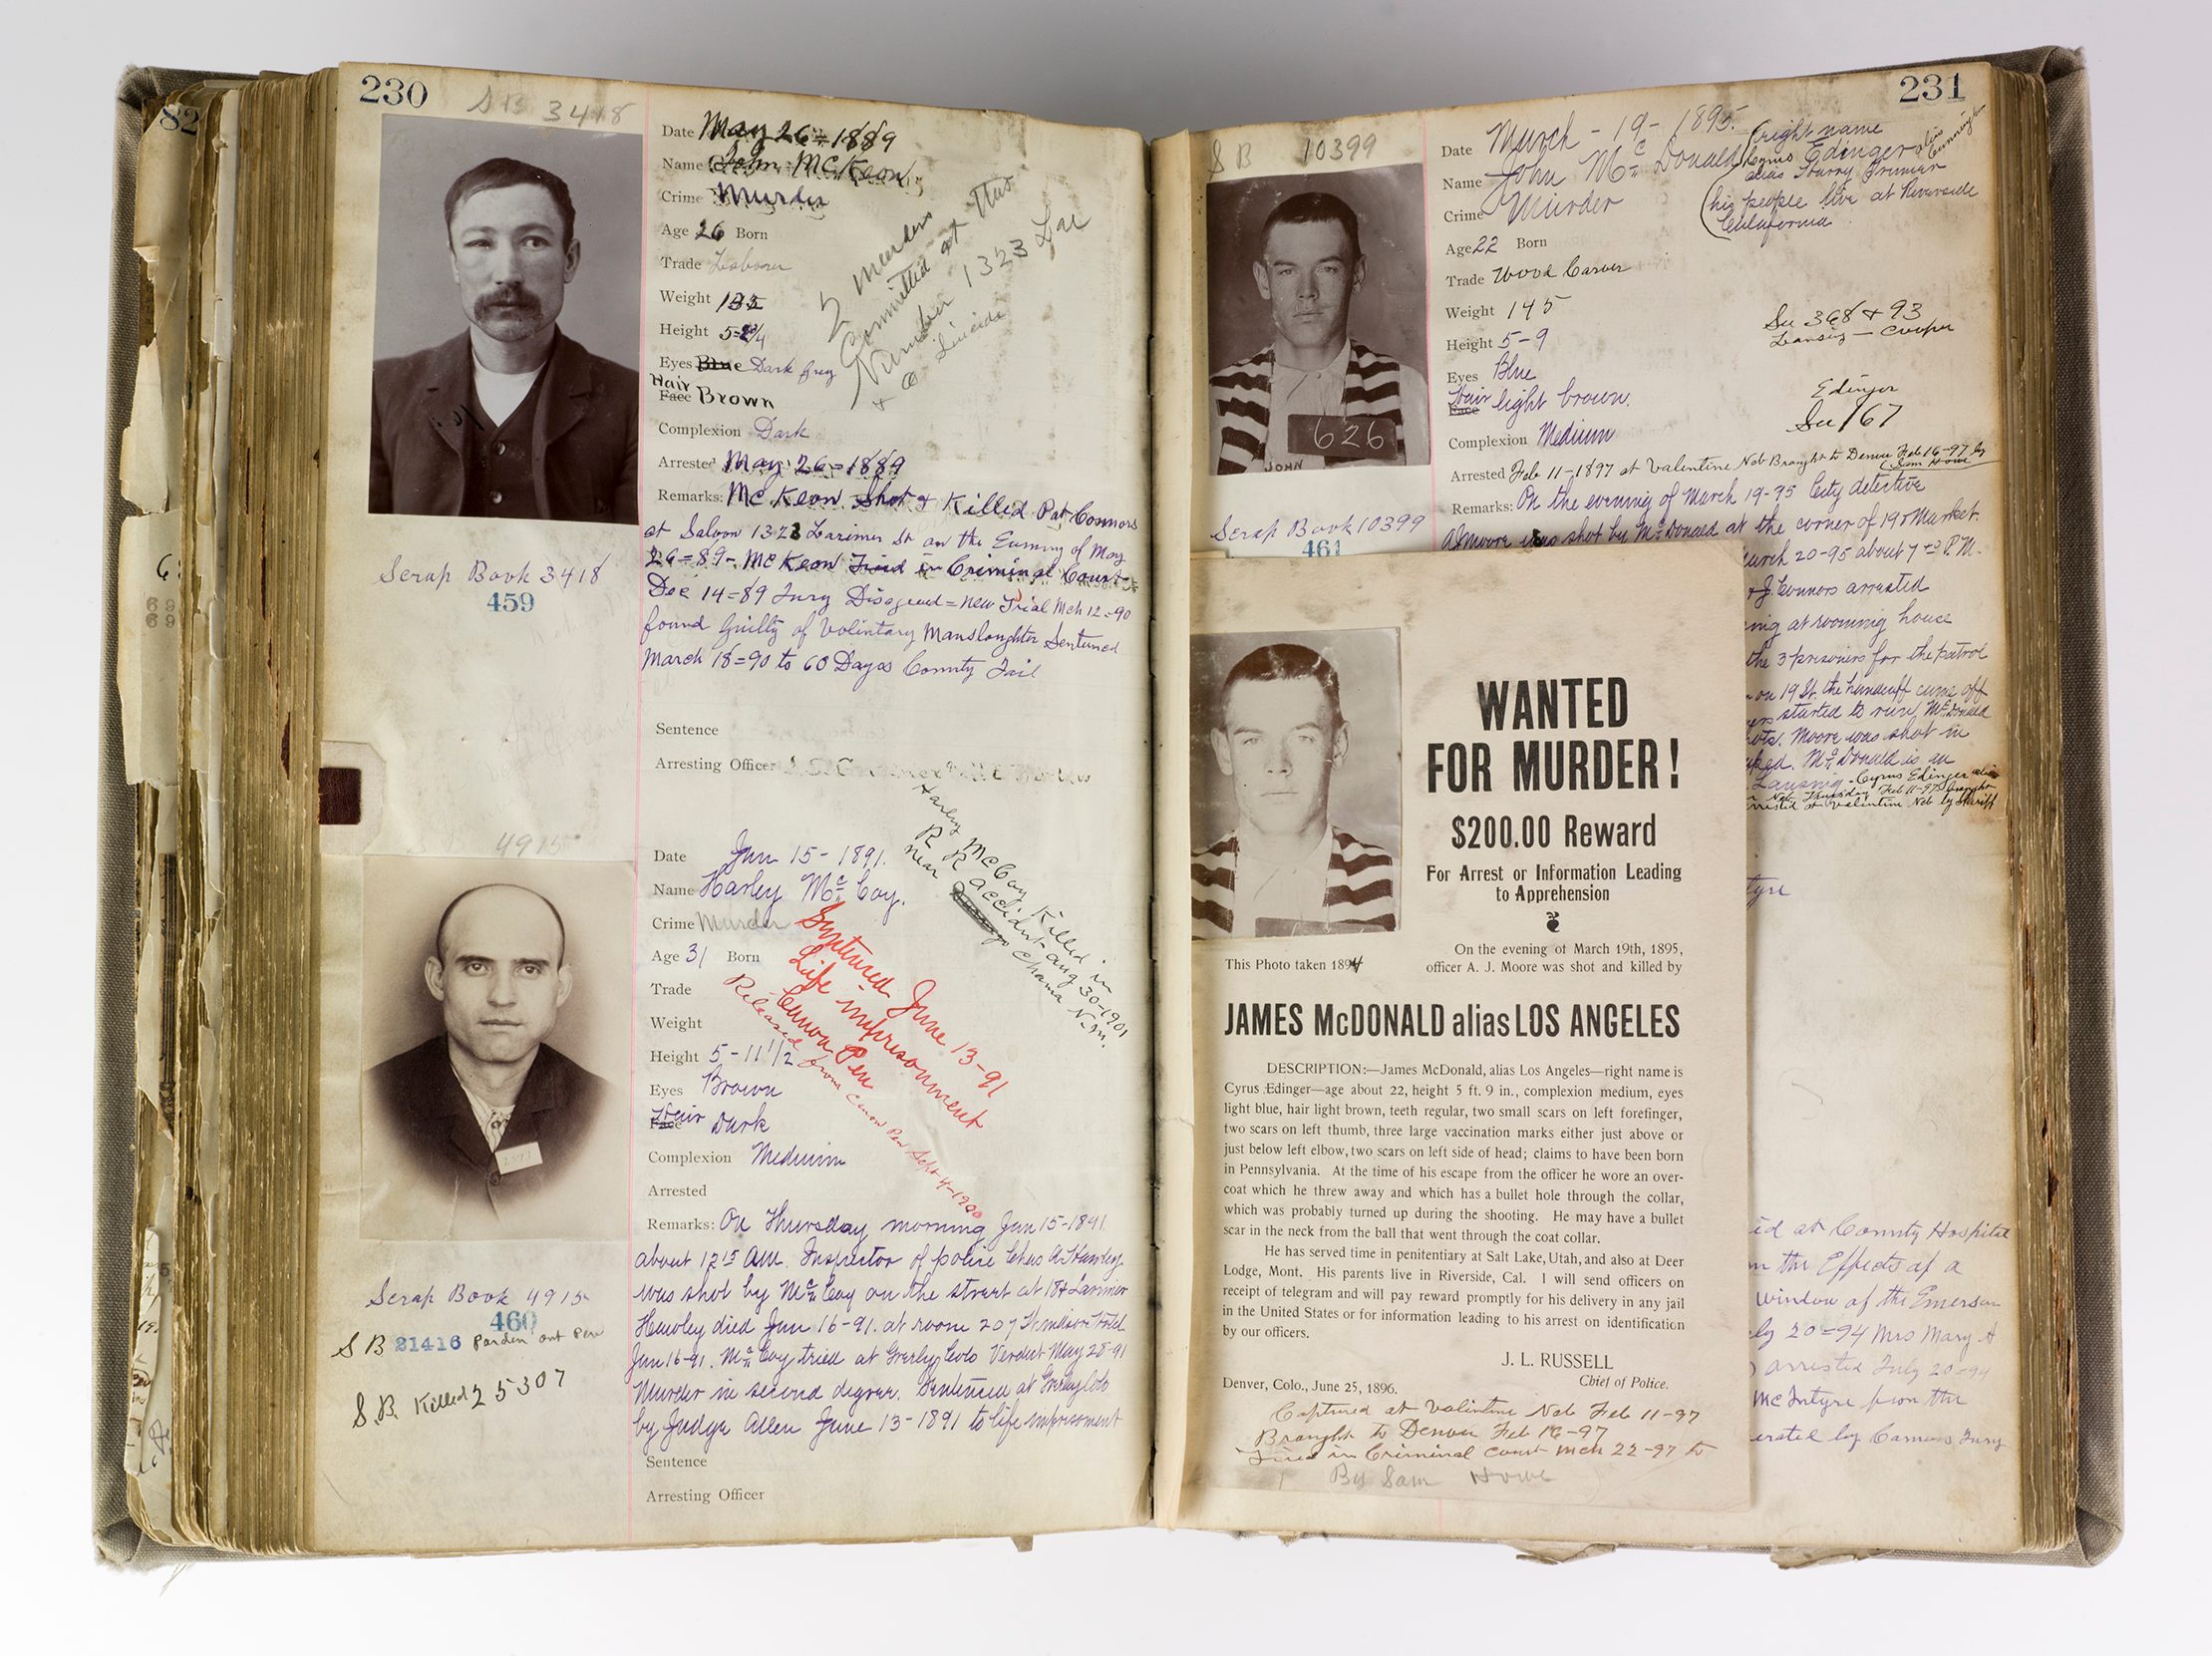 82
230
S B 3418
Date May 26 = 1889
Name John McKeon
Crime Murder
Age 26 Born
Trade Laborer
Weight 135
Height
Eyes Blue Dark Grey
Hair
Face Brown
Complexion Dark
Arrested May 26 = 1889
Remarks: McKeon Shot & Killed Pat Connors
at Saloon 1323 Larimer St on the Evening of May
26 = 89 - McKeon Tried in Criminal Court
Dec 14 = 89 Jury Disagreed = New Trial Mch 12 = 90
found Guilty of Voluntary Manslaughter Sentenced
March 18 = 90 to 60 Days County Jail
Sentence
Arresting Officer
2 murders
Committed at this
Number 1323 Lar
& a Suicide
Scrap Book 3418
459
4915
Date Jan 15 - 1891.
Name Harley McCoy.
Crime Murder
Age 31 Born
Trade
Weight
Height 5 - 11 1/2
Eyes Brown
Hair
Face Dark
Complexion Medium
Arrested
Remarks: On Thursday morning Jan 15 - 1891.
about 12 15 AM. Inspector of police Chas A Hawley
was shot by McCoy on the street at 18 & Larimer
Hawley died Jan 16-91. at room 207 Windsor Hotel
Jan 16-91. McCoy tried at Greeley Colo Verdict May 28-91
Murder in second degree. Sentenced at Greeley Colo
by Judge Allen June 13 - 1891 to life imprisonment
Sentence
Arresting Officer
Sentenced June 13-91
Life imprisonment
Canon Pen
Released from Canon Pen Sept 4-1900
Harley McCoy Killed in
R R accident aug 30-1901
near Chama N.M.
Scrap Book 4915
460
S B 21416 Parden out Pen
S.B. Killed 25307
231
S B 10399
Date March - 19 - 1895.
Name John McDonald
(right name
Cyrus Edinger alias
alias Harry
(his people live at Riverside
California
Crime Murder
Age 22 Born
Trade Wood Carver
Weight 145
Height 5 - 9
Eyes Blue
Hair
Face light brown.
Complexion Medium
See 368 & 93
Lansing - Cooper
Edinger
See 167
Arrested Feb 11-1897 at Valentine Neb Braught to Denver Feb 16-97 by
Sam Howe
Remarks: On the evening of March 19-95 City detective
A J Moore was shot by McDonald at the corner of 19 & Market.
626
JOHN
Scrap Book 10399
461
March 20-95 about 7 P.M.
& J. Connors arrested
at rooming house
the 3 prisoners for the patrol
on 19 St. the handcuff came off
started to run, McDonald
Moore was shot in
McDonald is an
Lansing - Cyrus Edinger alias
Neb Thursday Feb 11-97
at Valentine Neb by Sheriff
WANTED
FOR MURDER!
$200.00 Reward
For Arrest or Information Leading
to Apprehension
On the evening of March 19th, 1895,
officer A. J. Moore was shot and killed by
This Photo taken 1894
JAMES McDONALD alias LOS ANGELES
DESCRIPTION:—James McDonald, alias Los Angeles—right name is
Cyrus Edinger—age about 22, height 5 ft. 9 in., complexion medium, eyes
light blue, hair light brown, teeth regular, two small scars on left forefinger,
two scars on left thumb, three large vaccination marks either just above or
just below left elbow, two scars on left side of head; claims to have been born
in Pennsylvania. At the time of his escape from the officer he wore an over-
coat which he threw away and which has a bullet hole through the collar,
which was probably turned up during the shooting. He may have a bullet
scar in the neck from the ball that went through the coat collar.
He has served time in penitentiary at Salt Lake, Utah, and also at Deer
Lodge, Mont. His parents live in Riverside, Cal. I will send officers on
receipt of telegram and will pay reward promptly for his delivery in any jail
in the United States or for information leading to his arrest on identification
by our officers.
J. L. RUSSELL
Chief of Police.
Denver, Colo., June 25, 1896.
Captured at Valentine Neb Feb 11-97
Braught to Denver Feb 16-97
Tried in Criminal court mch 22-97 to
By Sam Howe
at County Hospital
the Effects of a
window of the Emerson
20=94 Mrs Mary A
arrested July 20=94
McIntyre from the
by Coroners Jury